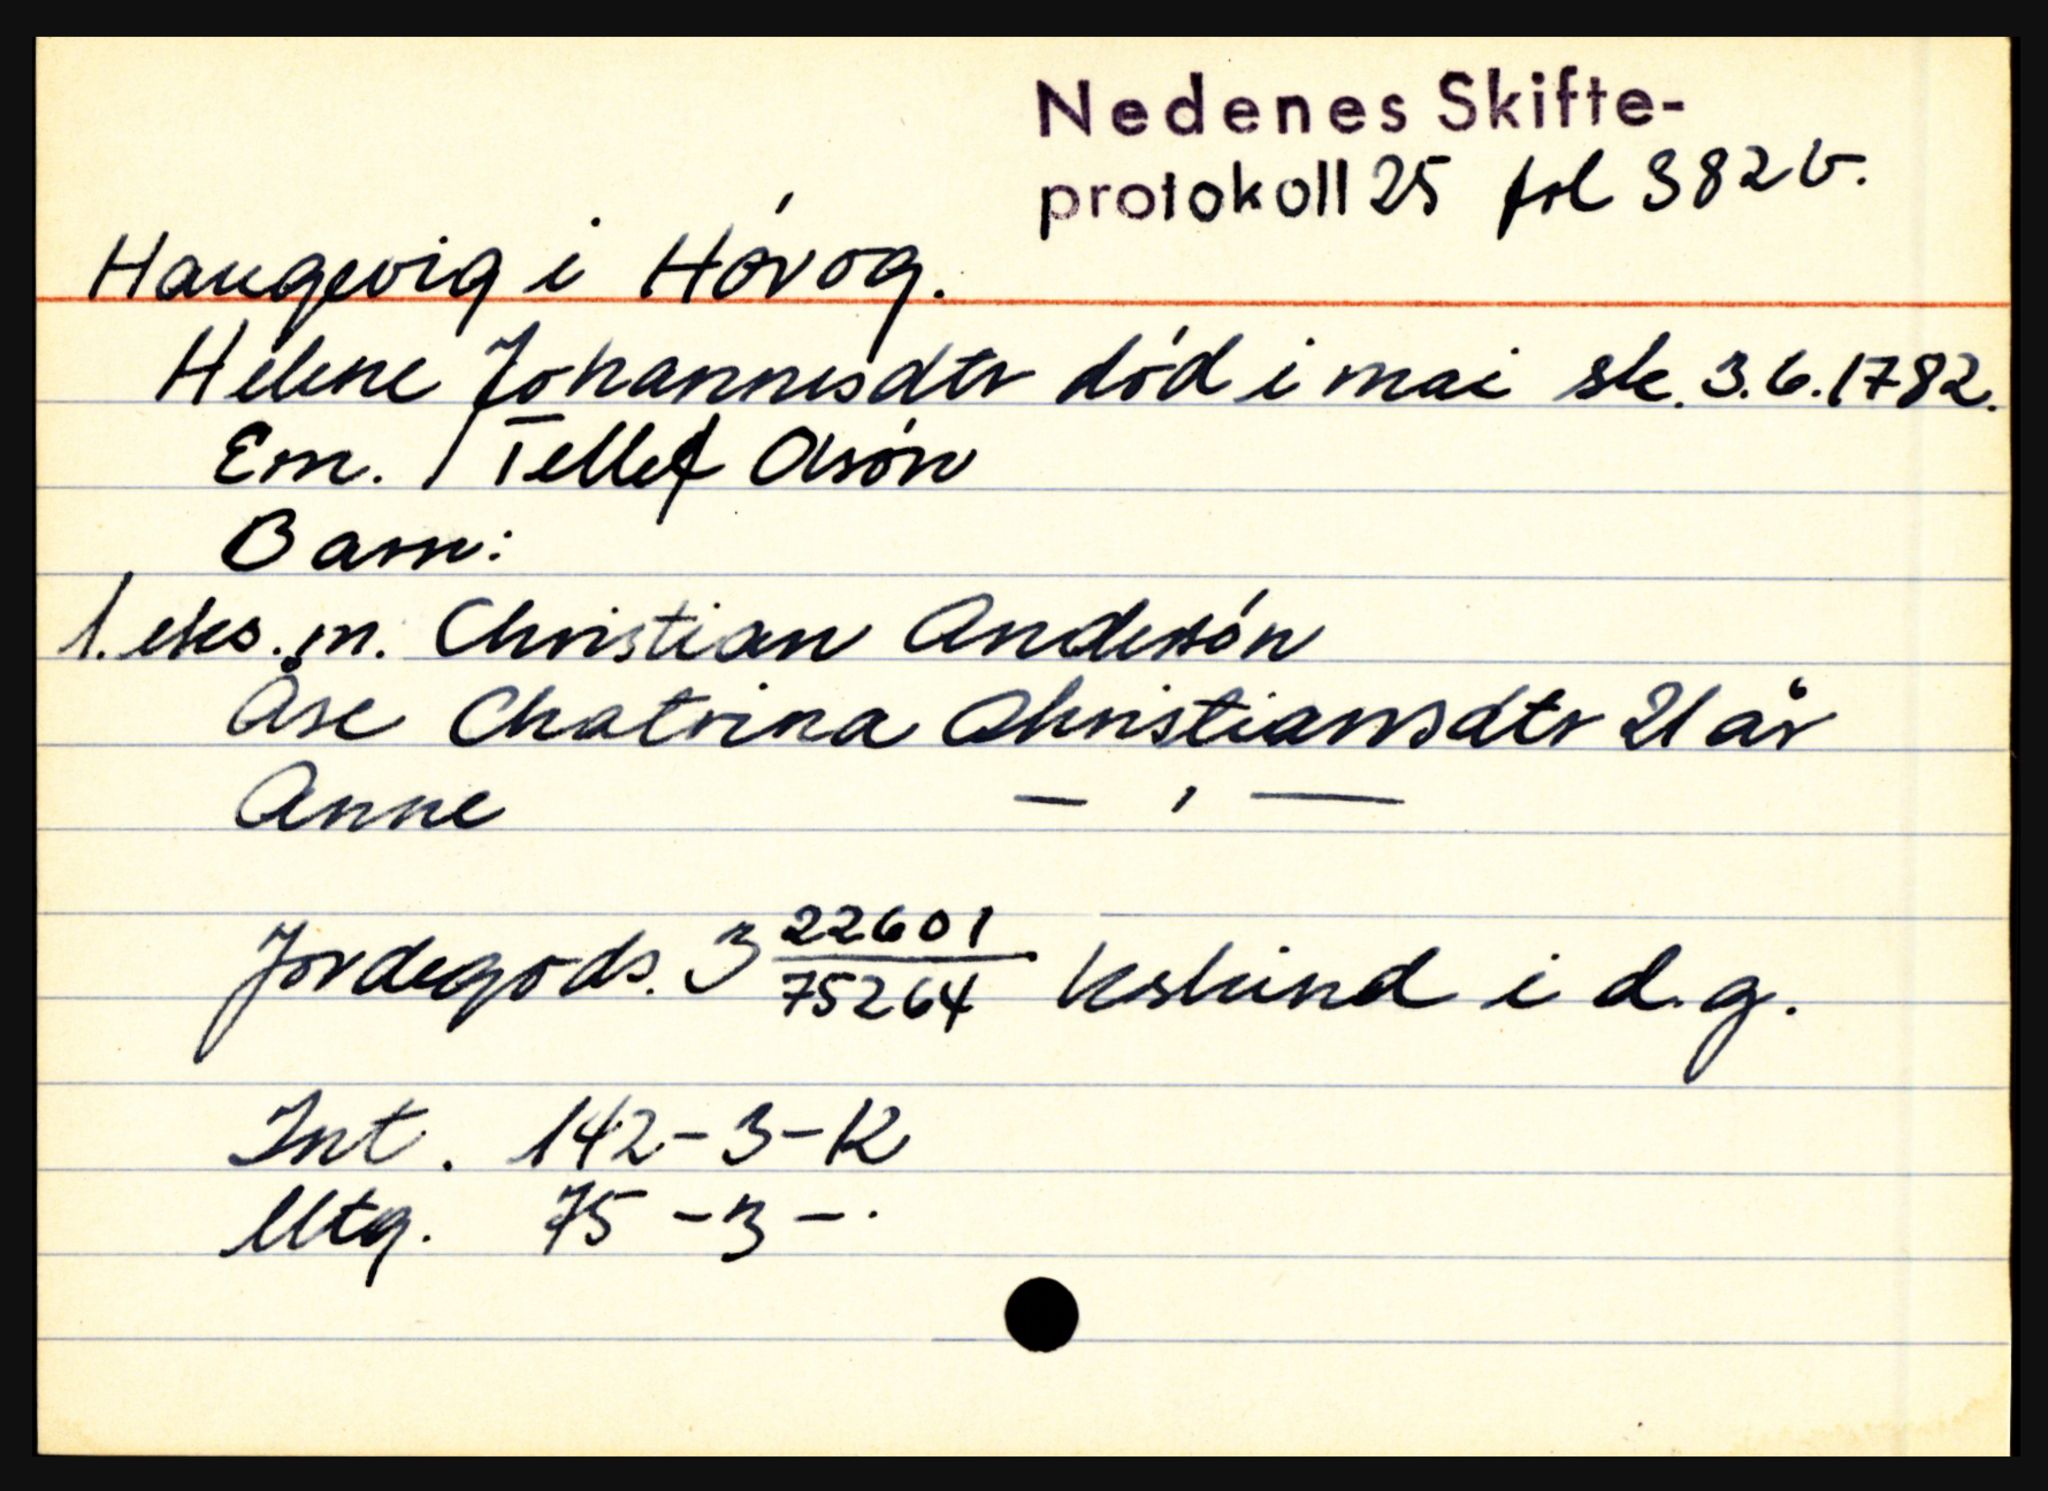 Nedenes Skifte-
protokoll 25 fol 382 b.
Haugevig i Høvog.
Helene Johannesdtr død i mai sk. 3.6.1782.
Em. Tellef Olsøn
Barn:
1. eks. m. Christian Andersøn
Åse Chatrina Christiansdtr 21 år
Anne — ' —
Jordegods. 3 22601/75264 kskind i d.g.
Int. 142-3-12
Utg. 75 - 3 - .